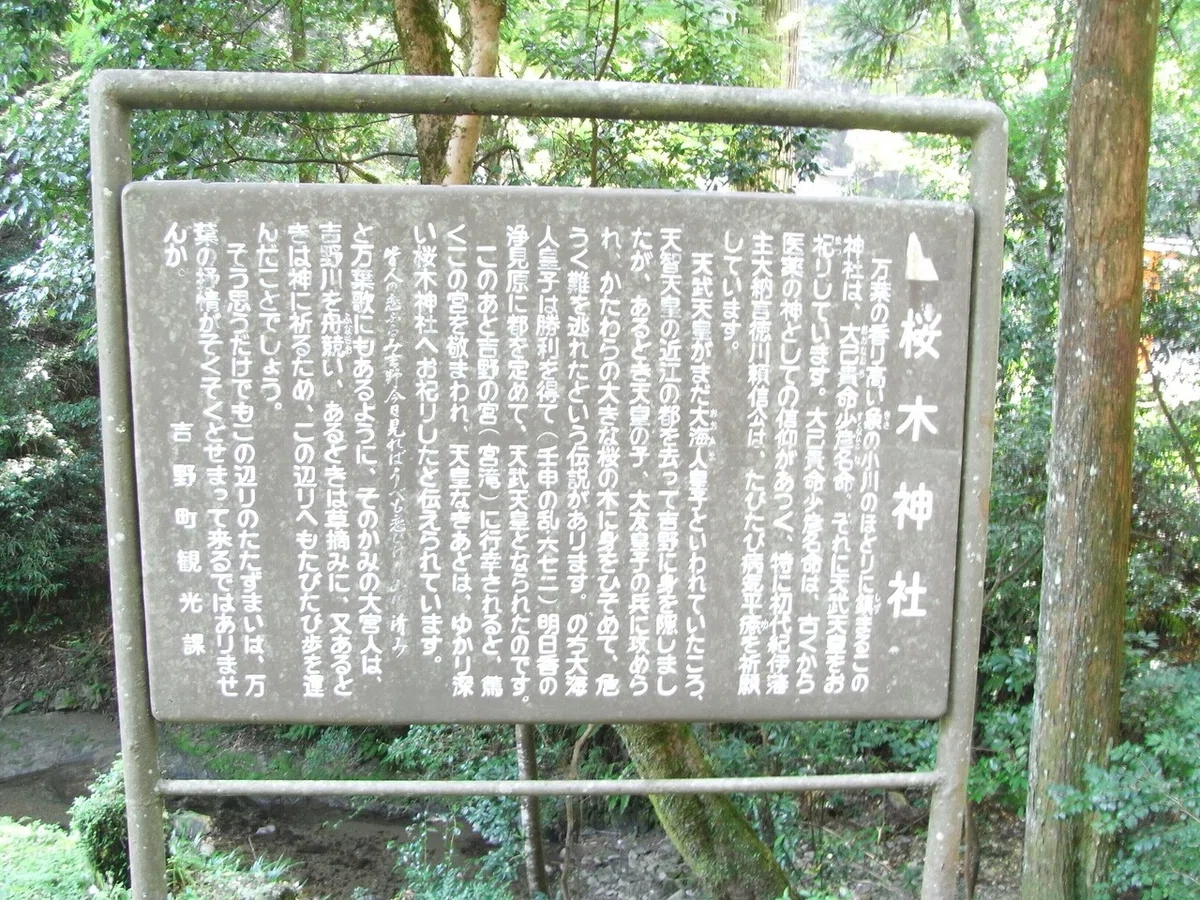 桜木神社
万葉の香り高い象の小川のほとりに鎮まるこの
神社は、大己貴命少彦名命、それに天武天皇をお
祀りしています。大己貴命少彦名命は、古くから
医薬の神としての信仰があつく、特に初代紀伊藩
主大納言徳川頼信公は、たびたび病気平癒を祈願
しています。
天武天皇がまだ大海人皇子といわれていたころ、
天智天皇の近江の都を去って吉野に身を隠しまし
たが、あるとき天皇の子、大友皇子の兵に攻めら
れ、かたわらの大きな桜の木に身をひそめて、危
うく難を逃れたという伝説があります。のち大海
人皇子は勝利を得て(壬申の乱六七二)明日香の
浄見原に都を定めて、天武天皇となられたのです。
このあと吉野の宮(宮滝)に行幸されると、篤
くこの宮を敬まわれ、天皇なきあとは、ゆかり深
い桜木神社へお祀りしたと伝えられています。
皆人の恋ふるみ吉野今日見ればうべも恋ひけり山川清み
と万葉歌にもあるように、そのかみの大宮人は、
吉野川を舟競い、あるときは草摘みに、又あると
きは神に祈るため、この辺りへもたびたび歩を運
んだことでしょう。
そう思うだけでもこの辺りのたたずまいは、万
葉の抒情がそくそくとせまって来るではありませ
んか。
吉野町観光課